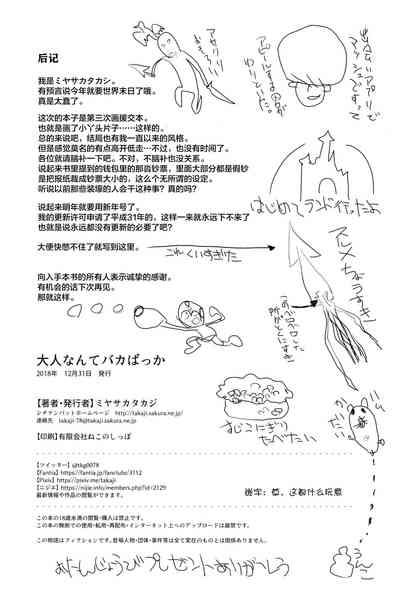 后记
我是ミヤサカタカシ。
有预言说今年就要世界末日了哦。
真是太蠢了。
这次的本子是第三次画援交本。
也就是画了小丫头片子……这样的。
总的来说吧，结局也有我一直以来的风格。
但是感觉莫名的有点高开低走…不过，也没有时间了。
各位就请脑补一下吧。不对，不脑补也没关系。
说起来书里提到的钱包里的那沓钞票，里面大部分都是假钞
是把报纸裁成钞票大小的，这么个无所谓的设定。
听说以前那些装嫩的人会干这种事？真的吗？
说起来明年就要用新年号了。
我的更新许可申请了平成31年的，这样一来就永远下不来了
也就是说永远都没有更新的必要了吧？
大便快憋不住了就写到这里。
向入手本书的所有人表示诚挚的感谢。
有机会的话下次再见。
那就这样。
大人なんてバカばっか
2018年　12月31日　発行
【著者・発行者】ミヤサカタカジ
シチテンバットホームページ　http://takaji.sakura.ne.jp/
連絡先　takaji-78@takaji.sakura.ne.jp
【印刷】有限会社ねこのしっぽ
【ツイッター】@tkg0078
【Fantia】https://fantia.jp/fanclubs/3112
【Pixiv】https://pixiv.me/takaji
【ニジエ】https://nijie.info/members.php?id=2129
最新情報や作品の閲覧ができます。
この本の18歳未満の閲覧・購入は禁止です。
この本の無断での使用・転用・再配布・インターネット上へのアップロードは厳禁です。
この物語はフィクションです。登場人物・団体・事件等は全て実在のものとは関係ありません。
はじめてランド行ったよ
嵌字：草，这都什么玩意
おたんじょうびプレゼントありがとう